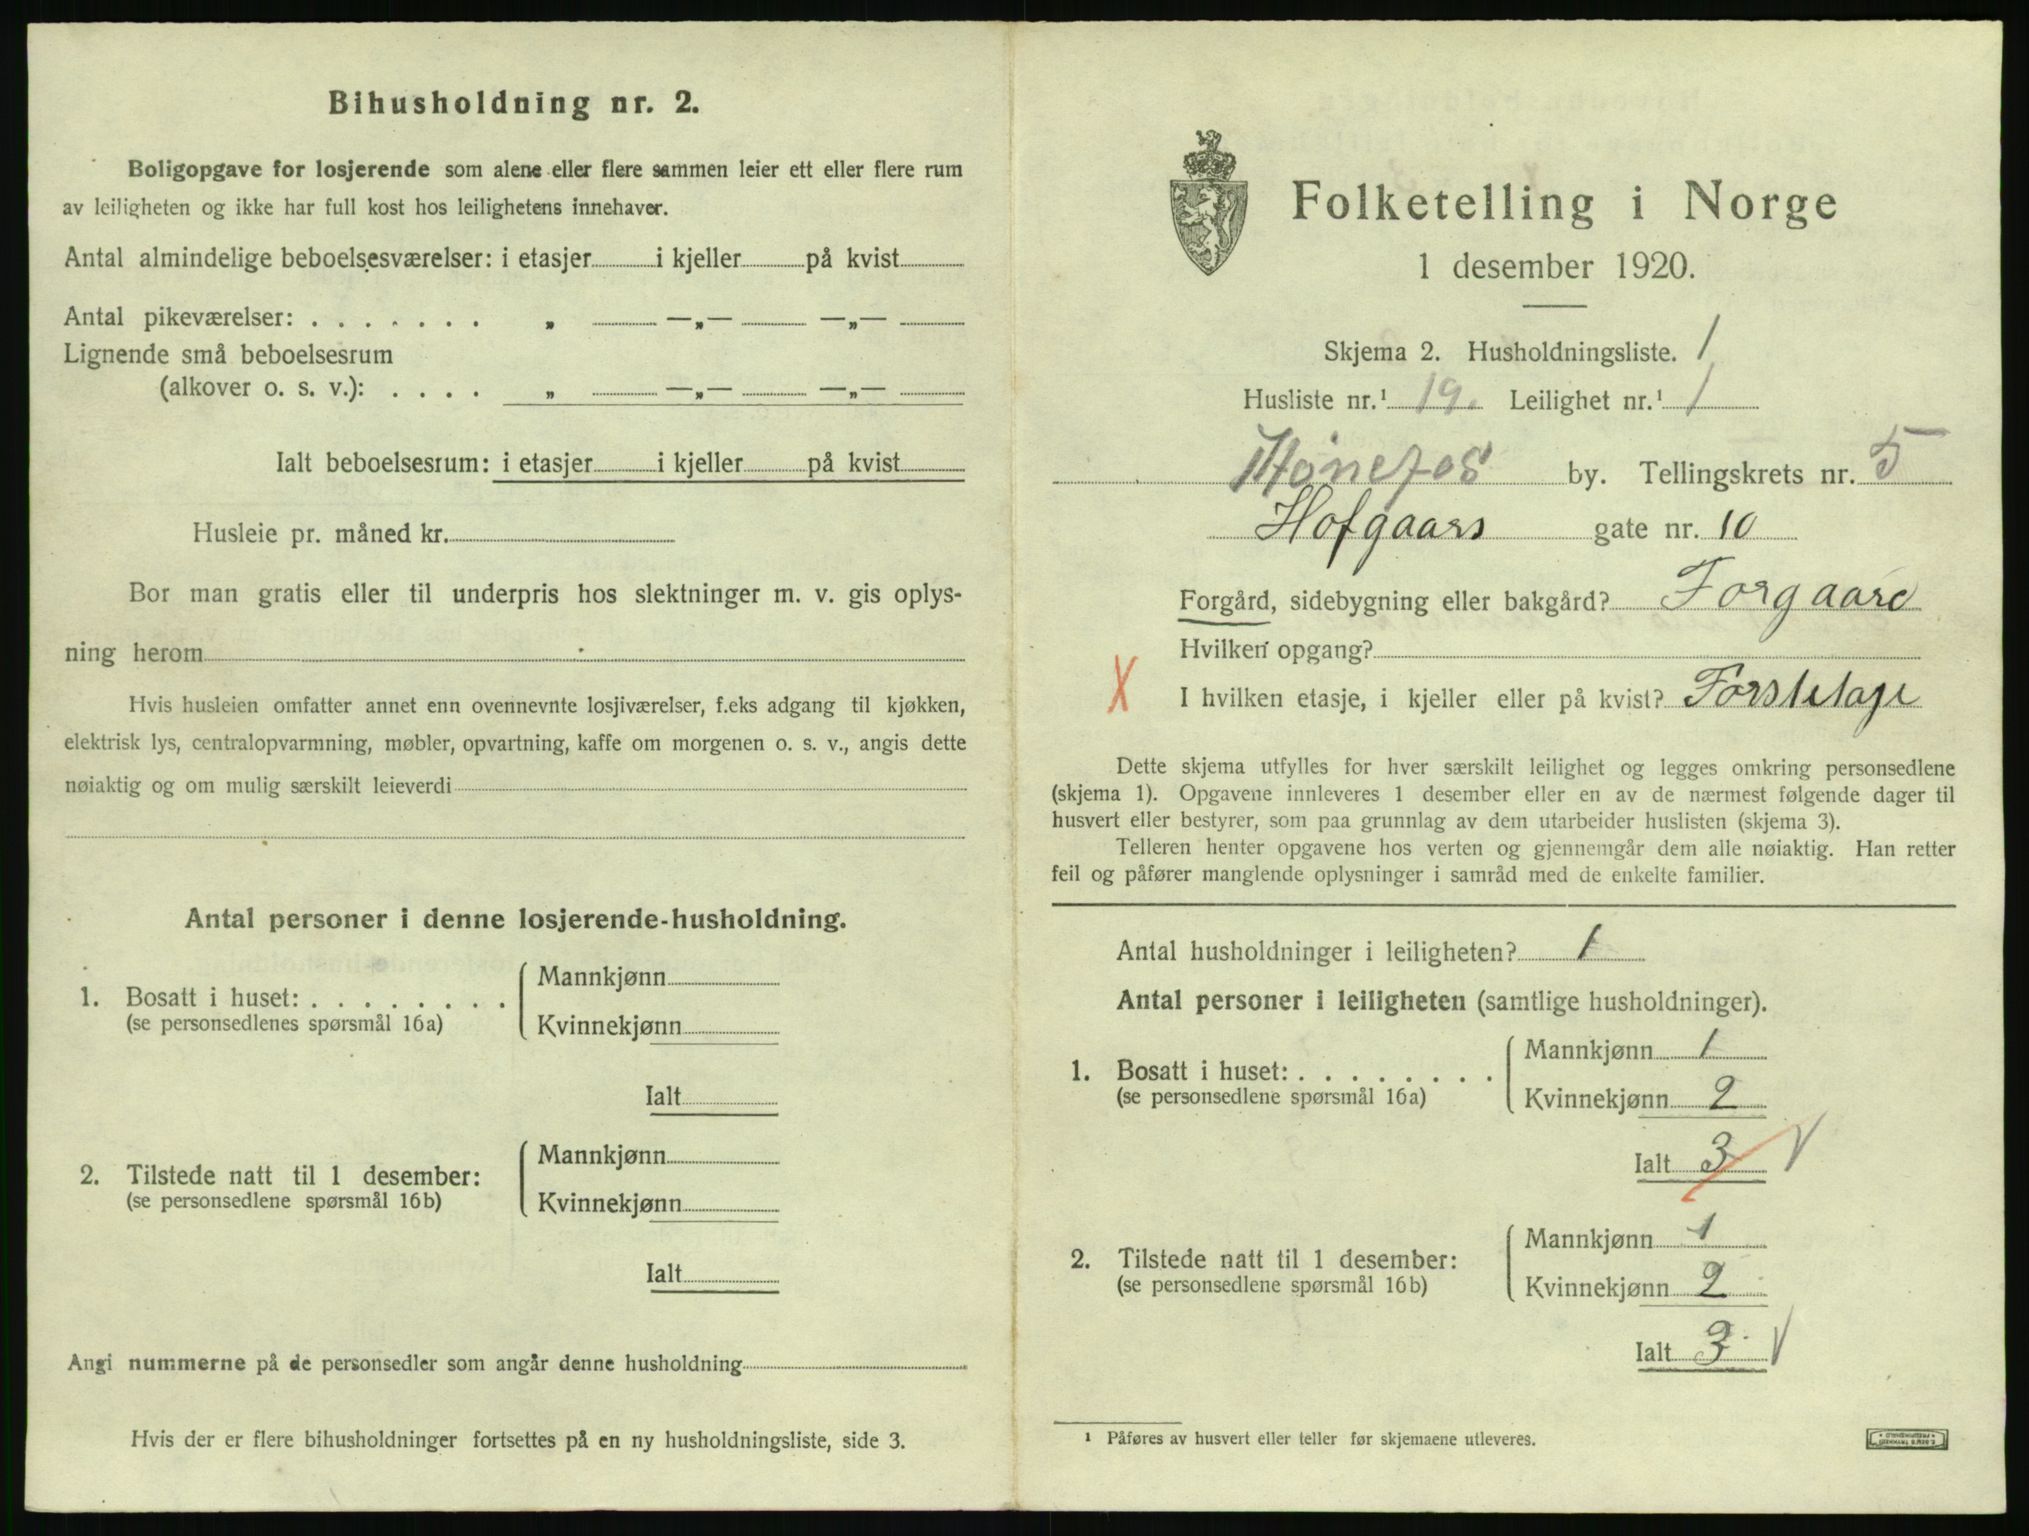 Bihusholdning nr. 2.
Boligopgave for losjerende som alene eller flere sammen leier ett eller flere rum
av leiligheten og ikke har full kost hos leilighetens innehaver.
Antal almindelige beboelsesværelser: i etasjer i kjeller på kvist
Antal pikeværelser: . . . . . . . „ —„— —„—
Lignende små beboelsesrum
(alkover o. s. v.): . . . . „ —„— —„—
Ialt beboelsesrum: i etasjer i kjeller på kvist
Husleie pr. måned kr.
Bor man gratis eller til underpris hos slektninger m. v. gis oplys-
ning herom
Hvis husleien omfatter annet enn ovennevnte losjiværelser, f.eks adgang til kjøkken,
elektrisk lys, centralopvarmning, møbler, opvartning, kaffe om morgenen o. s. v., angis dette
nøiaktig og om mulig særskilt leieverdi
Antal personer i denne losjerende-husholdning.
1. Bosatt i huset: . . . . . . . .
(se personsedlenes spørsmål 16a)
Mannkjønn
Kvinnekjønn
Ialt
2. Tilstede natt til 1 desember:
(se personsedlene spørsmål 16b)
Mannkjønn
Kvinnekjønn
Ialt
Angi nummerne på de personsedler som angår denne husholdning
Hvis der er flere bihusholdninger fortsettes på en ny husholdningsliste, side 3.
Folketelling i Norge
1 desember 1920.
Skjema 2. Husholdningsliste. 1
Husliste nr.¹ 19. Leilighet nr.¹ 1
Hønefos by. Tellingskrets nr. 5
Hofgaars gate nr. 10
Forgård, sidebygning eller bakgård? Forgaard
Hvilken opgang?
X I hvilken etasje, i kjeller eller på kvist? Førstetage
Dette skjema utfylles for hver særskilt leilighet og legges omkring personsedlene
(skjema 1). Opgavene innleveres 1 desember eller en av de nærmest følgende dager til
husvert eller bestyrer, som paa grunnlag av dem utarbeider huslisten (skjema 3).
Telleren henter opgavene hos verten og gjennemgår dem alle nøiaktig. Han retter
feil og påfører manglende oplysninger i samråd med de enkelte familier.
Antal husholdninger i leiligheten? 1
Antal personer i leiligheten (samtlige husholdninger).
1. Bosatt i huset: . . . . . . . .
(se personsedlene spørsmål 16a)
Mannkjønn 1
Kvinnekjønn 2
Ialt 3 V
2. Tilstede natt til 1 desember:
(se personsedlene spørsmål 16b)
Mannkjønn 1
Kvinnekjønn 2
Ialt 3 V
¹ Påføres av husvert eller teller før skjemaene utleveres.